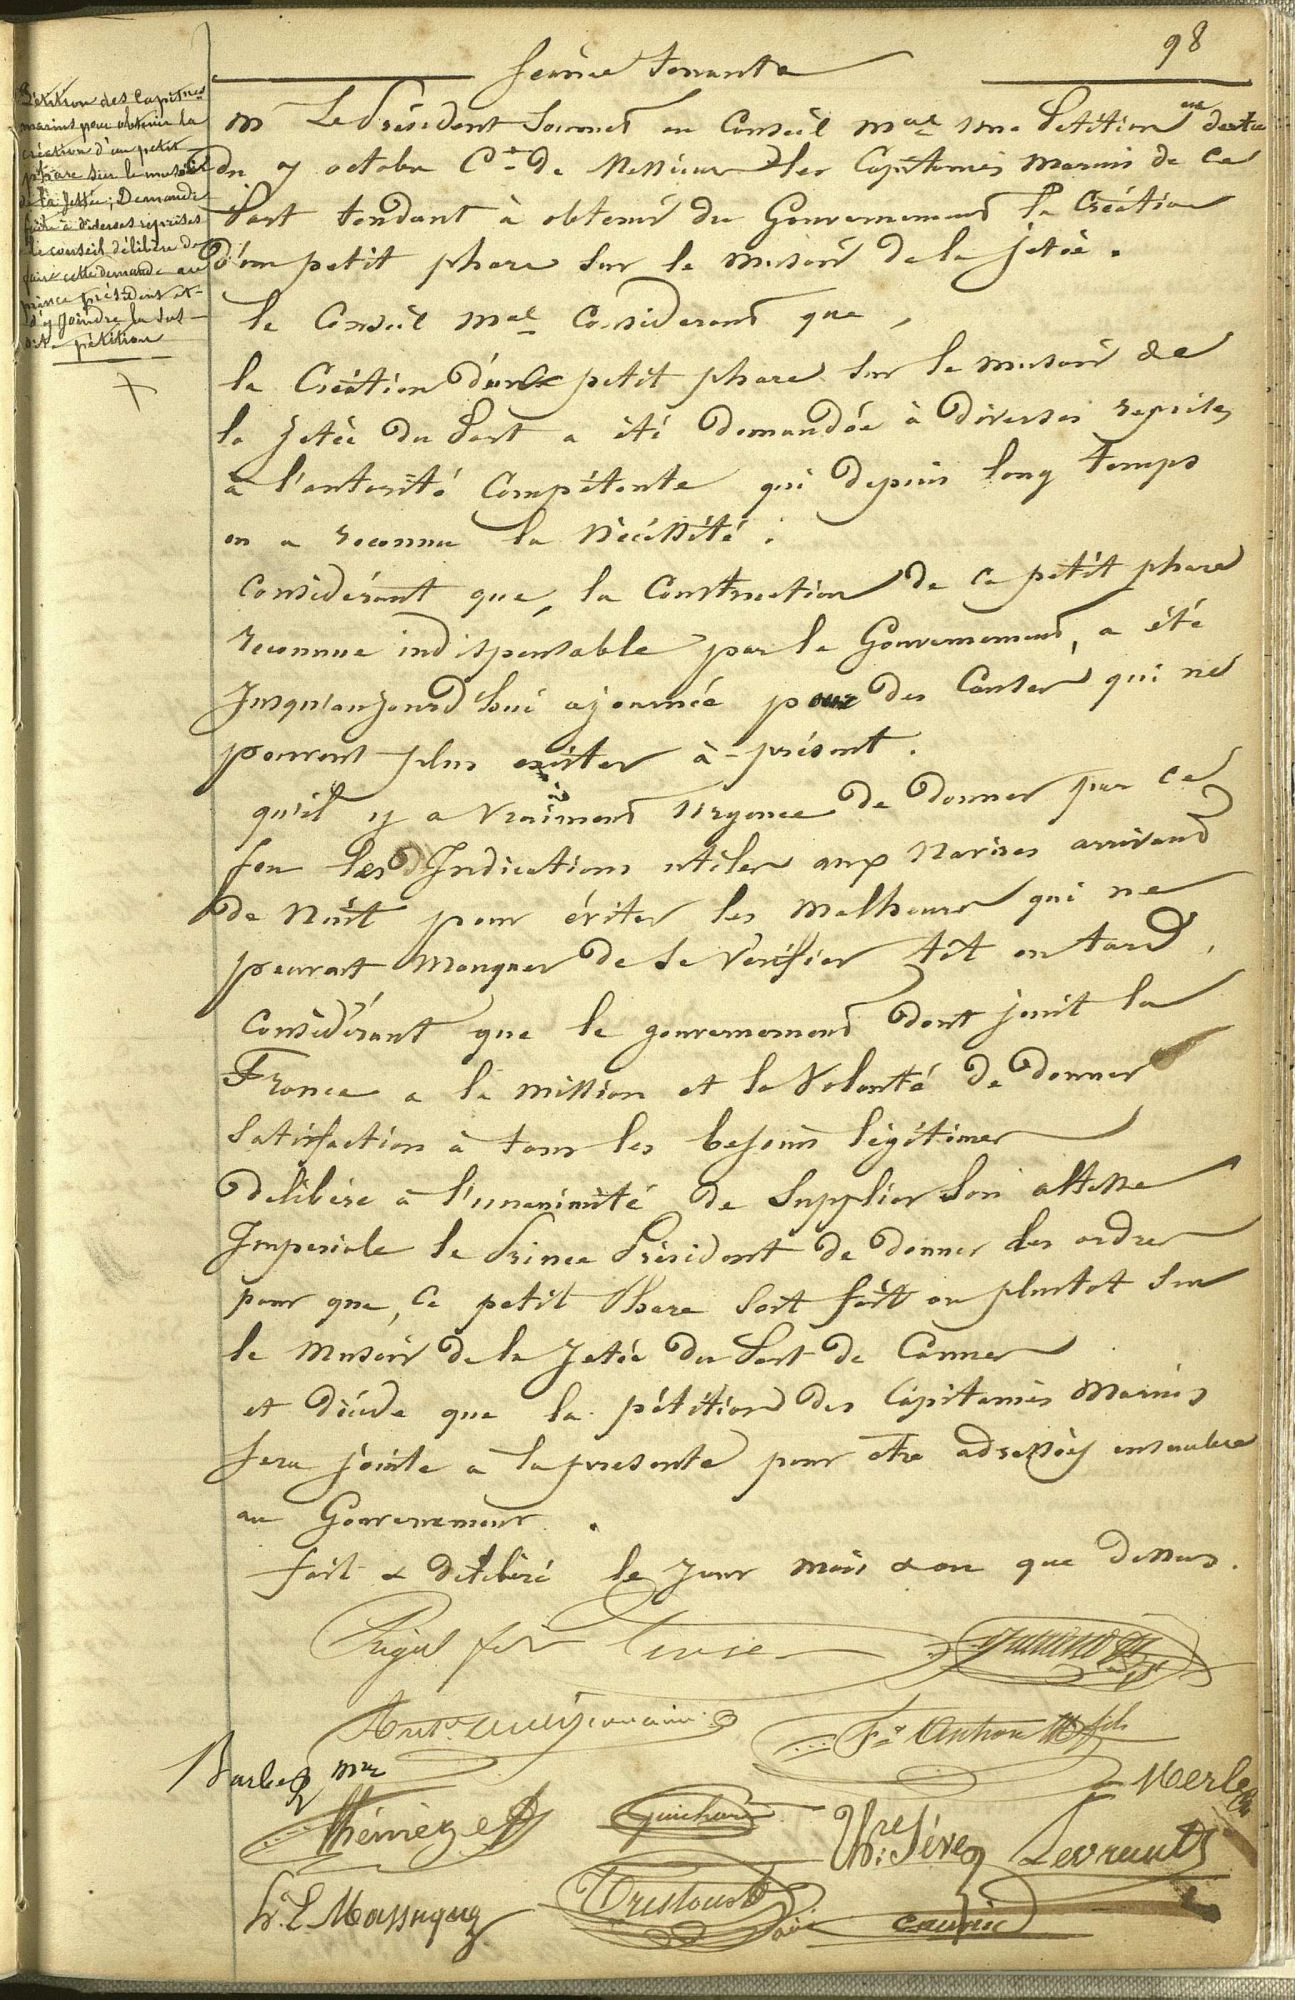 98
Séance tenante
Pétition des Capitnes
marins pour obtenir la
création d'un petit
phare sur le musoir
de la jettée; Demande
faite à diverses reprises
le conseil délibère de
faire cette demande au
prince président et
d'y joindre la sus
dite pétition
Mr Le Président Soumet au Conseil mal une Pétition en datte
du 7 octobre Ct de Messieurs les Capitaines marins de ce
Port tendant à obtenir du Gouvernement la Création
d'un petit phare sur le musoir de la jetée.
le Conseil mal Considerant que,
la Création d'un petit phare sur le musoir de
la jetée du Port a été demandée à diverses reprises
à l'autorité Compétente qui depuis long temps
en a reconnu la Nécéssité.
Considérant que, la Construction de ce petit phare
reconnue indispensable par le Gouvernement, a été
jusqu'aujourd'hui ajournée pour des Causes qui ne
peuvent plus exister à-présent.
qu'il y a vraiment Urgence de donner par ce
feu les Indications utiles aux Navires arrivant
de Nuit pour éviter les malheurs qui ne
peuvent Manquer de se Vérifier tôt ou tard,
Considérant que le gouvernement dont jouit la
France a la mission et la Volonté de donner
Satisfaction à tous les besoins légitimes
délibère à l'unanimité de Supplier Son altesse
Imperiale le Prince Président de donner des ordres
pour que, ce petit Phare soit fait au plutot sur
le Musoir de la Jetée du Port de Cannes
et décide que la pétition des Capitaines Marins
sera jointe a la presente pour etre adressées ensemble
au Gouvernement.
fait & délibéré le jour mois & an que dessus.
Rigal
Barbe mre
Merle
Guichard
Hre Sève
Levreault
h. L. Massuque